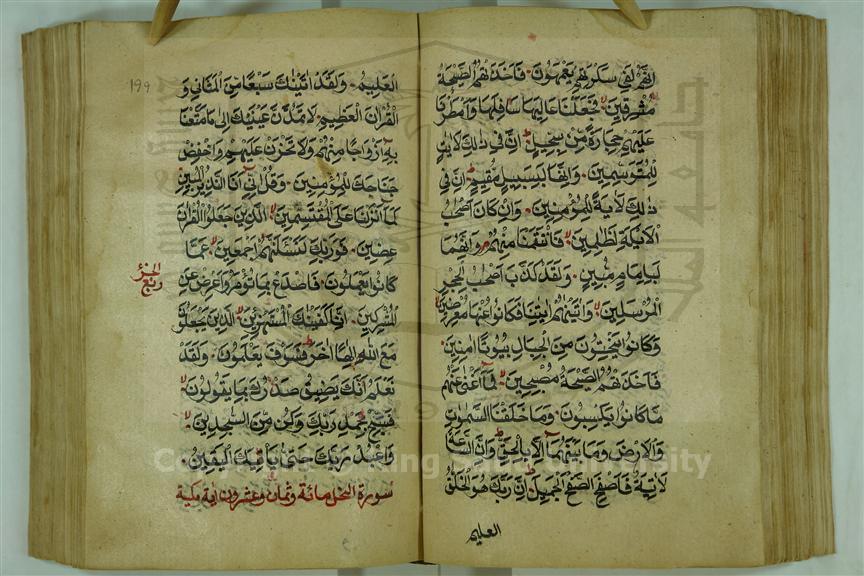 انهم لفي سكرتهم يعمهون فاخذتهم الصيحة
مشرقين فجعلنا عاليها سافلها وامطرنا
عليهم حجارة من سجيل ان في ذلك لايت
للمتوسمين وانها لبسبيل مقيم ان في
ذلك لاية للمؤمنين وان كان اصحب
الايكة لظلمين فانتقمنا منهم وانهما
لبامام مبين ولقد كذب اصحب الحجر
المرسلين واتينهم ايتنا فكانوا عنها معرضين
وكانوا ينحتون من الجبال بيوتا امنين
فاخذتهم الصيحة مصبحين فما اغنى عنهم
ما كانوا يكسبون وما خلقنا السموت
والارض وما بينهما الا بالحق وان الساعة
لاتية فاصفح الصفح الجميل ان ربك هو الخلق
العليم
199
العليم ولقد اتينك سبعا من المثاني و
القران العظيم لا تمدن عينيك الى ما متعنا
به ازواجا منهم ولا تحزن عليهم واخفض
جناحك للمؤمنين وقل اني انا النذير المبين
كما انزلنا على المقتسمين الذين جعلوا القران
عضين فوربك لنسئلنهم اجمعين عما
كانوا يعملون فاصدع بما تؤمر واعرض عن
المشركين انا كفينك المستهزين الذين يجعلون
مع الله الها اخر فسوف يعلمون ولقد
نعلم انك يضيق صدرك بما يقولون
فسبح بحمد ربك وكن من السجدين
واعبد ربك حتى ياتيك اليقين
سورة النحل مائة وثمان وعشرون اية مكية
ربع